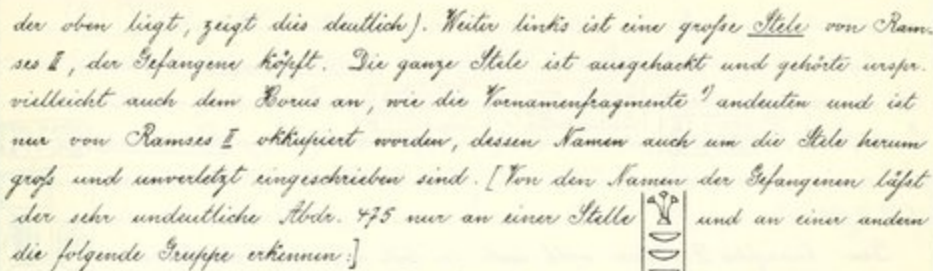 der oben liegt, zeigt dies deutlich). Weiter links ist eine große Stele von Ram-
ses II, der Gefangene köpft. Die ganze Stele ist ausgehackt und gehörte urspr.
vielleicht auch dem Horus an, wie die Vornamenfragmente ¹) andeuten und ist
nur von Ramses II okkupiert worden, dessen Namen auch um die Stele herum
groß und unverletzt eingeschrieben sind. [Von den Namen der Gefangenen läßt
der sehr undeutliche Abdr. 475 nur an einer Stelle und an einer andern
die folgende Gruppe erkennen:]